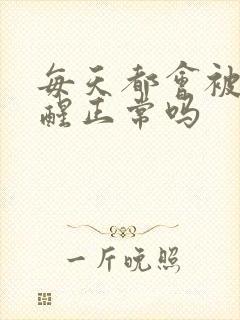 每天都會被
醒正常吗
一斤晚照